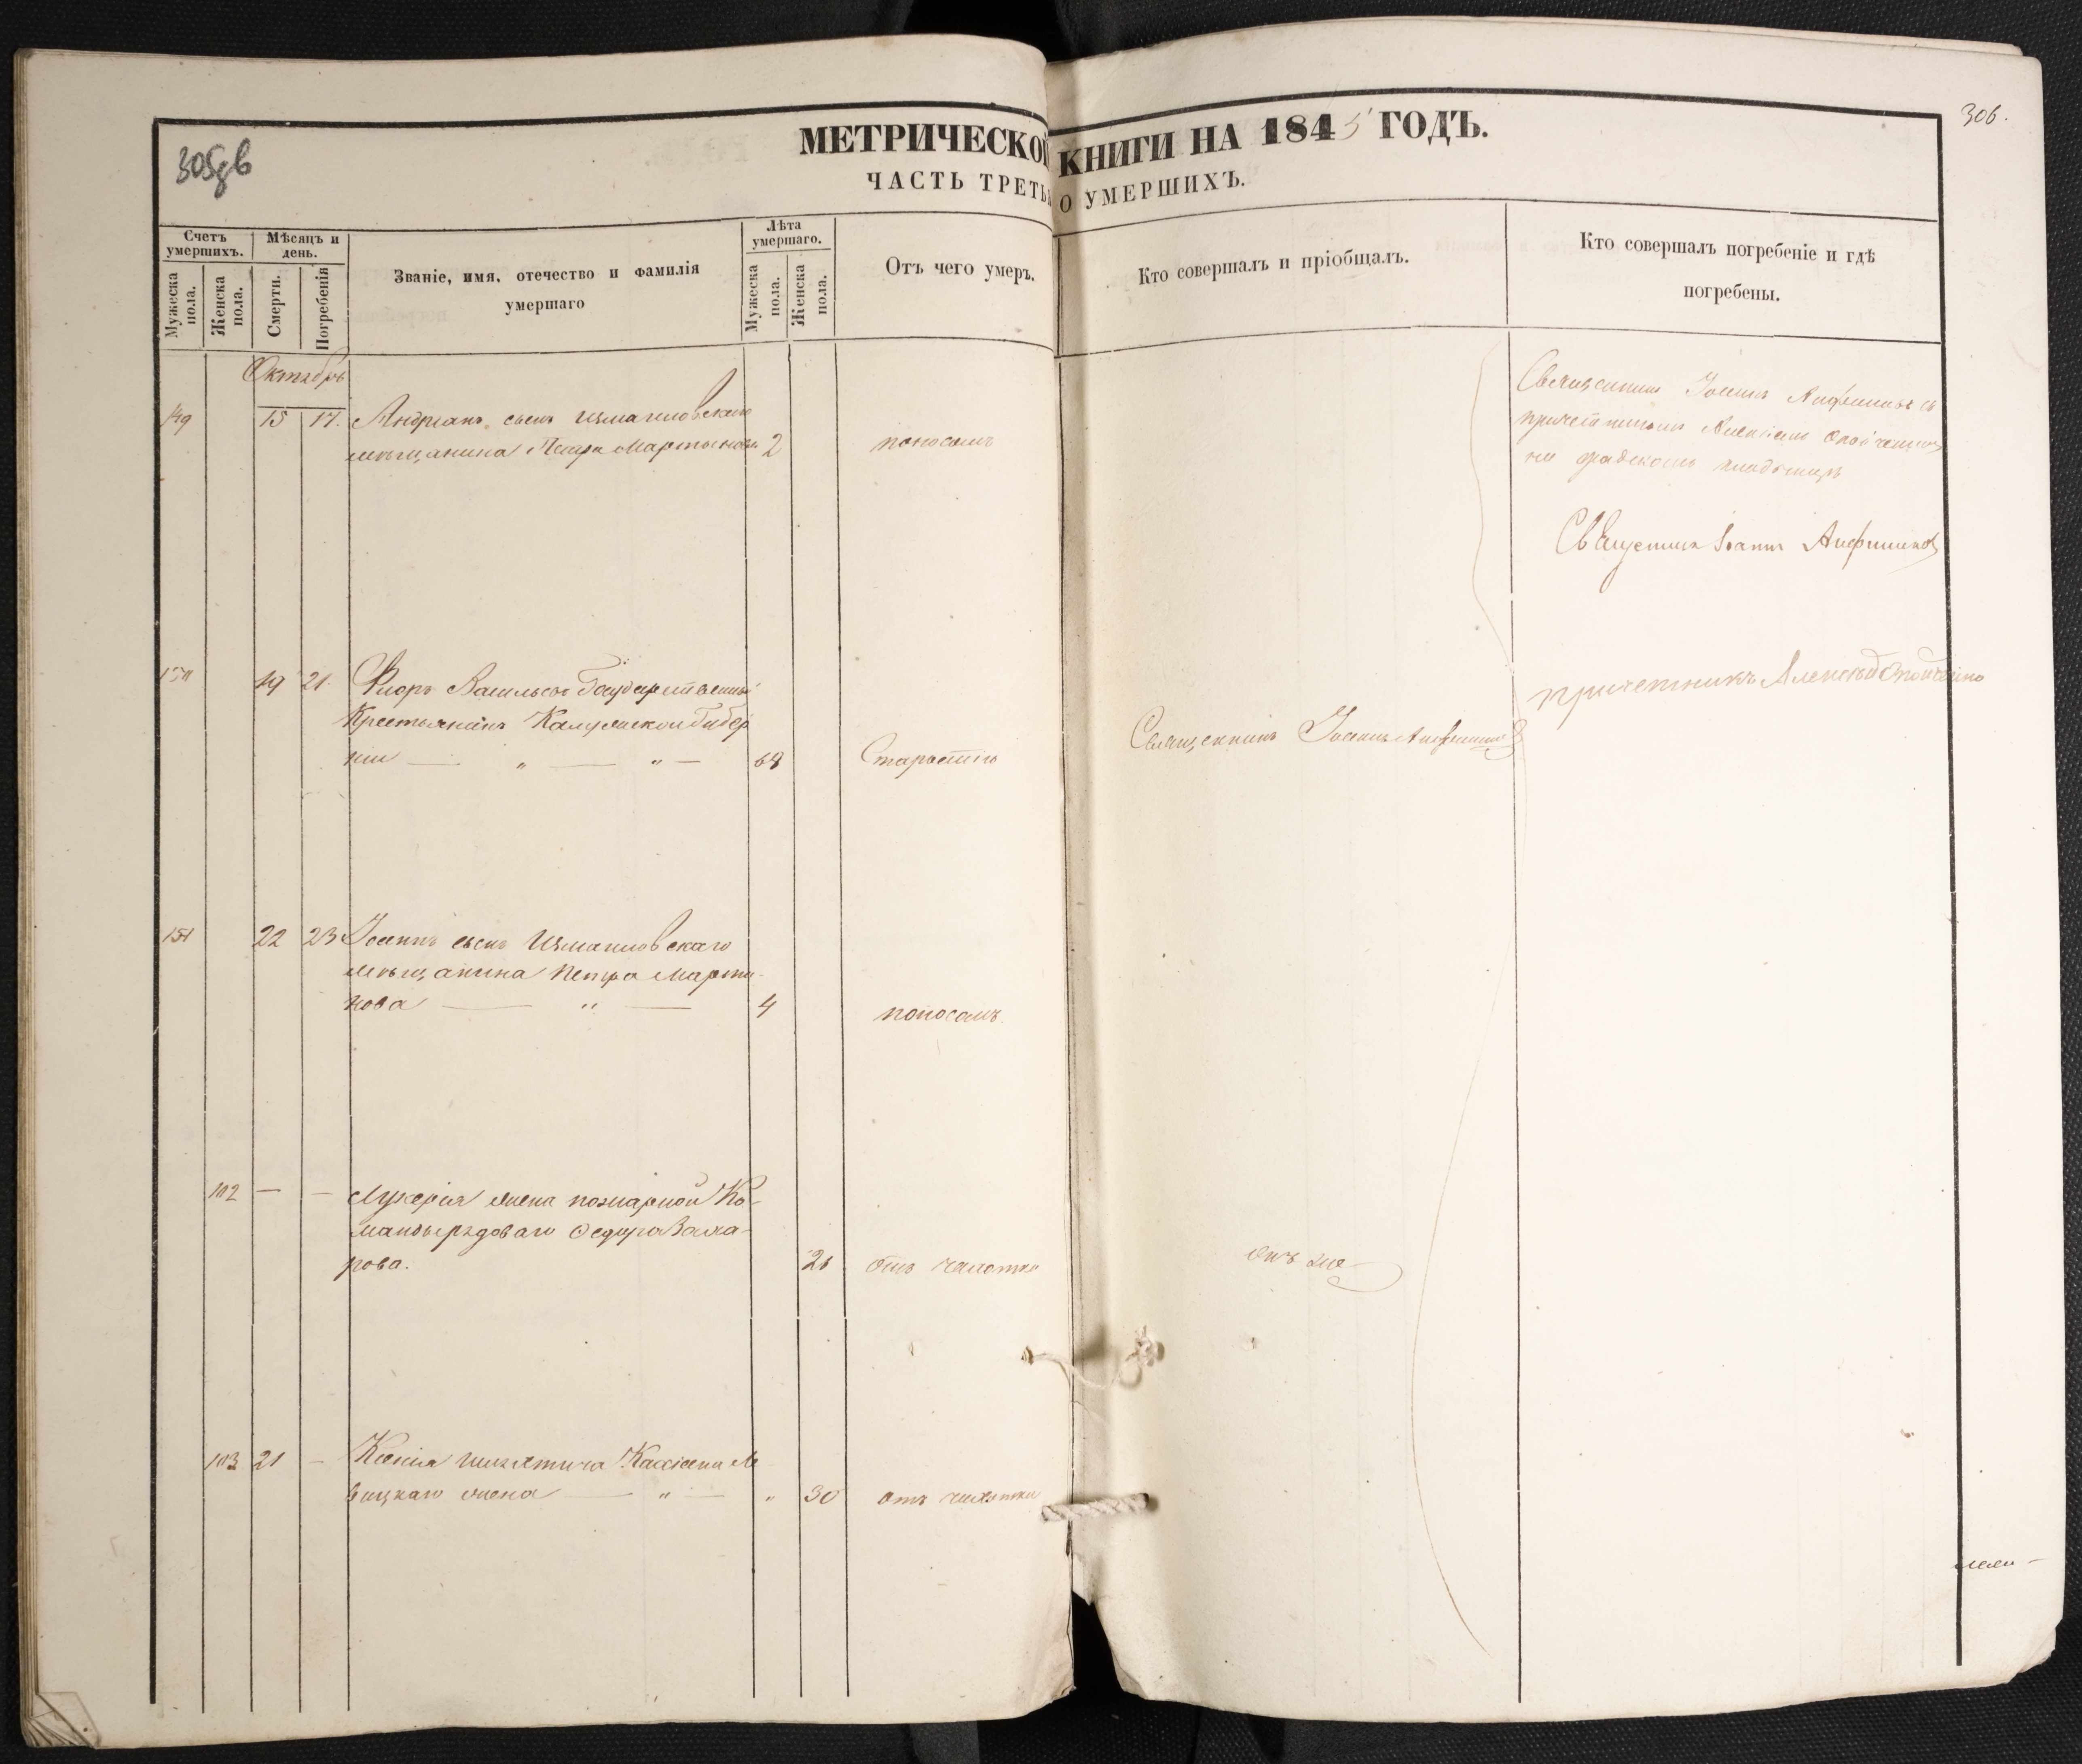 305об
306.
МЕТРИЧЕСКОЙ КНИГИ НА 1845 ГОДЪ.
ЧАСТЬ ТРЕТЬЯ О УМЕРШИХЪ.
Счетъ умершихъ.
Мужеска пола.
Женска пола.
Мѣсяцъ и день.
Смерти.
Погребенія
Званіе, имя, отечество и фамилія
умершаго
Лѣта умершаго.
Мужеска пола.
Женска пола.
Отъ чего умеръ.
Кто совершалъ и пріобщалъ.
Кто совершалъ погребеніе и гдѣ
погребены.
Октябрь
149 15 17. Андріанъ, сынъ Измаиловскаго
мѣщанина Петра Мартынова 2 поносомъ
Священникъ Іоаннъ Анфиновъ съ
причетникомъ
на градскомъ кладбищѣ
Священникъ Іоаннъ
150 19 21. Флоръ Васильевъ Государственный
Крестьянинъ Калужской Губер
ніи — „ — „ — 68 Старостію
Священникъ Іоаннъ
причетникъ Алексѣй
151 22 23 Іоаннъ сынъ Измаиловскаго
мѣщанина Петра Марты-
нова — „ — 4 поносомъ.
102 — — Лукерія жена пожарной Ко-
манды рядоваго Федора Заха-
рова. 21 отъ чахотки
онъ же
103 21 — Ксенія Кассіана
вицкаго жена — „ — „ 30 отъ чахотки